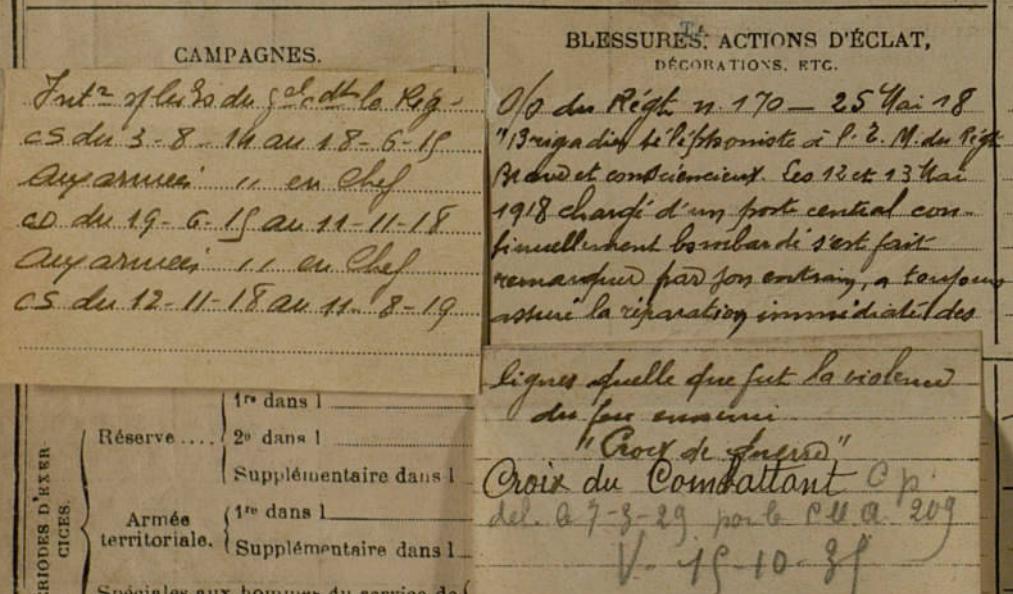 CAMPAGNES.
Intre places du gal dt la Rég.
CS du 3-8-14 au 18-6-15
aux armées " en Chef
CD du 19-6-15 au 11-11-18
aux armées " en Chef
CS du 12-11-18 au 11-8-19
BLESSURES, ACTIONS D'ÉCLAT,
DÉCORATIONS, ETC.
O/O du Régt n. 170 — 25 Mai 18
"Brigadier téléphoniste à l'E. M. du Régt
Brave et consciencieux. Les 12 et 13 Mai
1918 chargé d'un poste central con-
tinuellement bombardé s'est fait
remarquer par son entrain, a toujours
assuré la réparation immédiate des
lignes quelle que fut la violence
du feu ennemi
"Croix de Guerre"
Croix du Combattant
del. le 7-3-29 par le 209
V. 15-10-35
PERIODES D'EXER-
CICES.
Réserve....
1re dans l
2e dans l
Supplémentaire dans l
Armée
territoriale.
1re dans l
Supplémentaire dans l
Spéciales aux hommes du service de